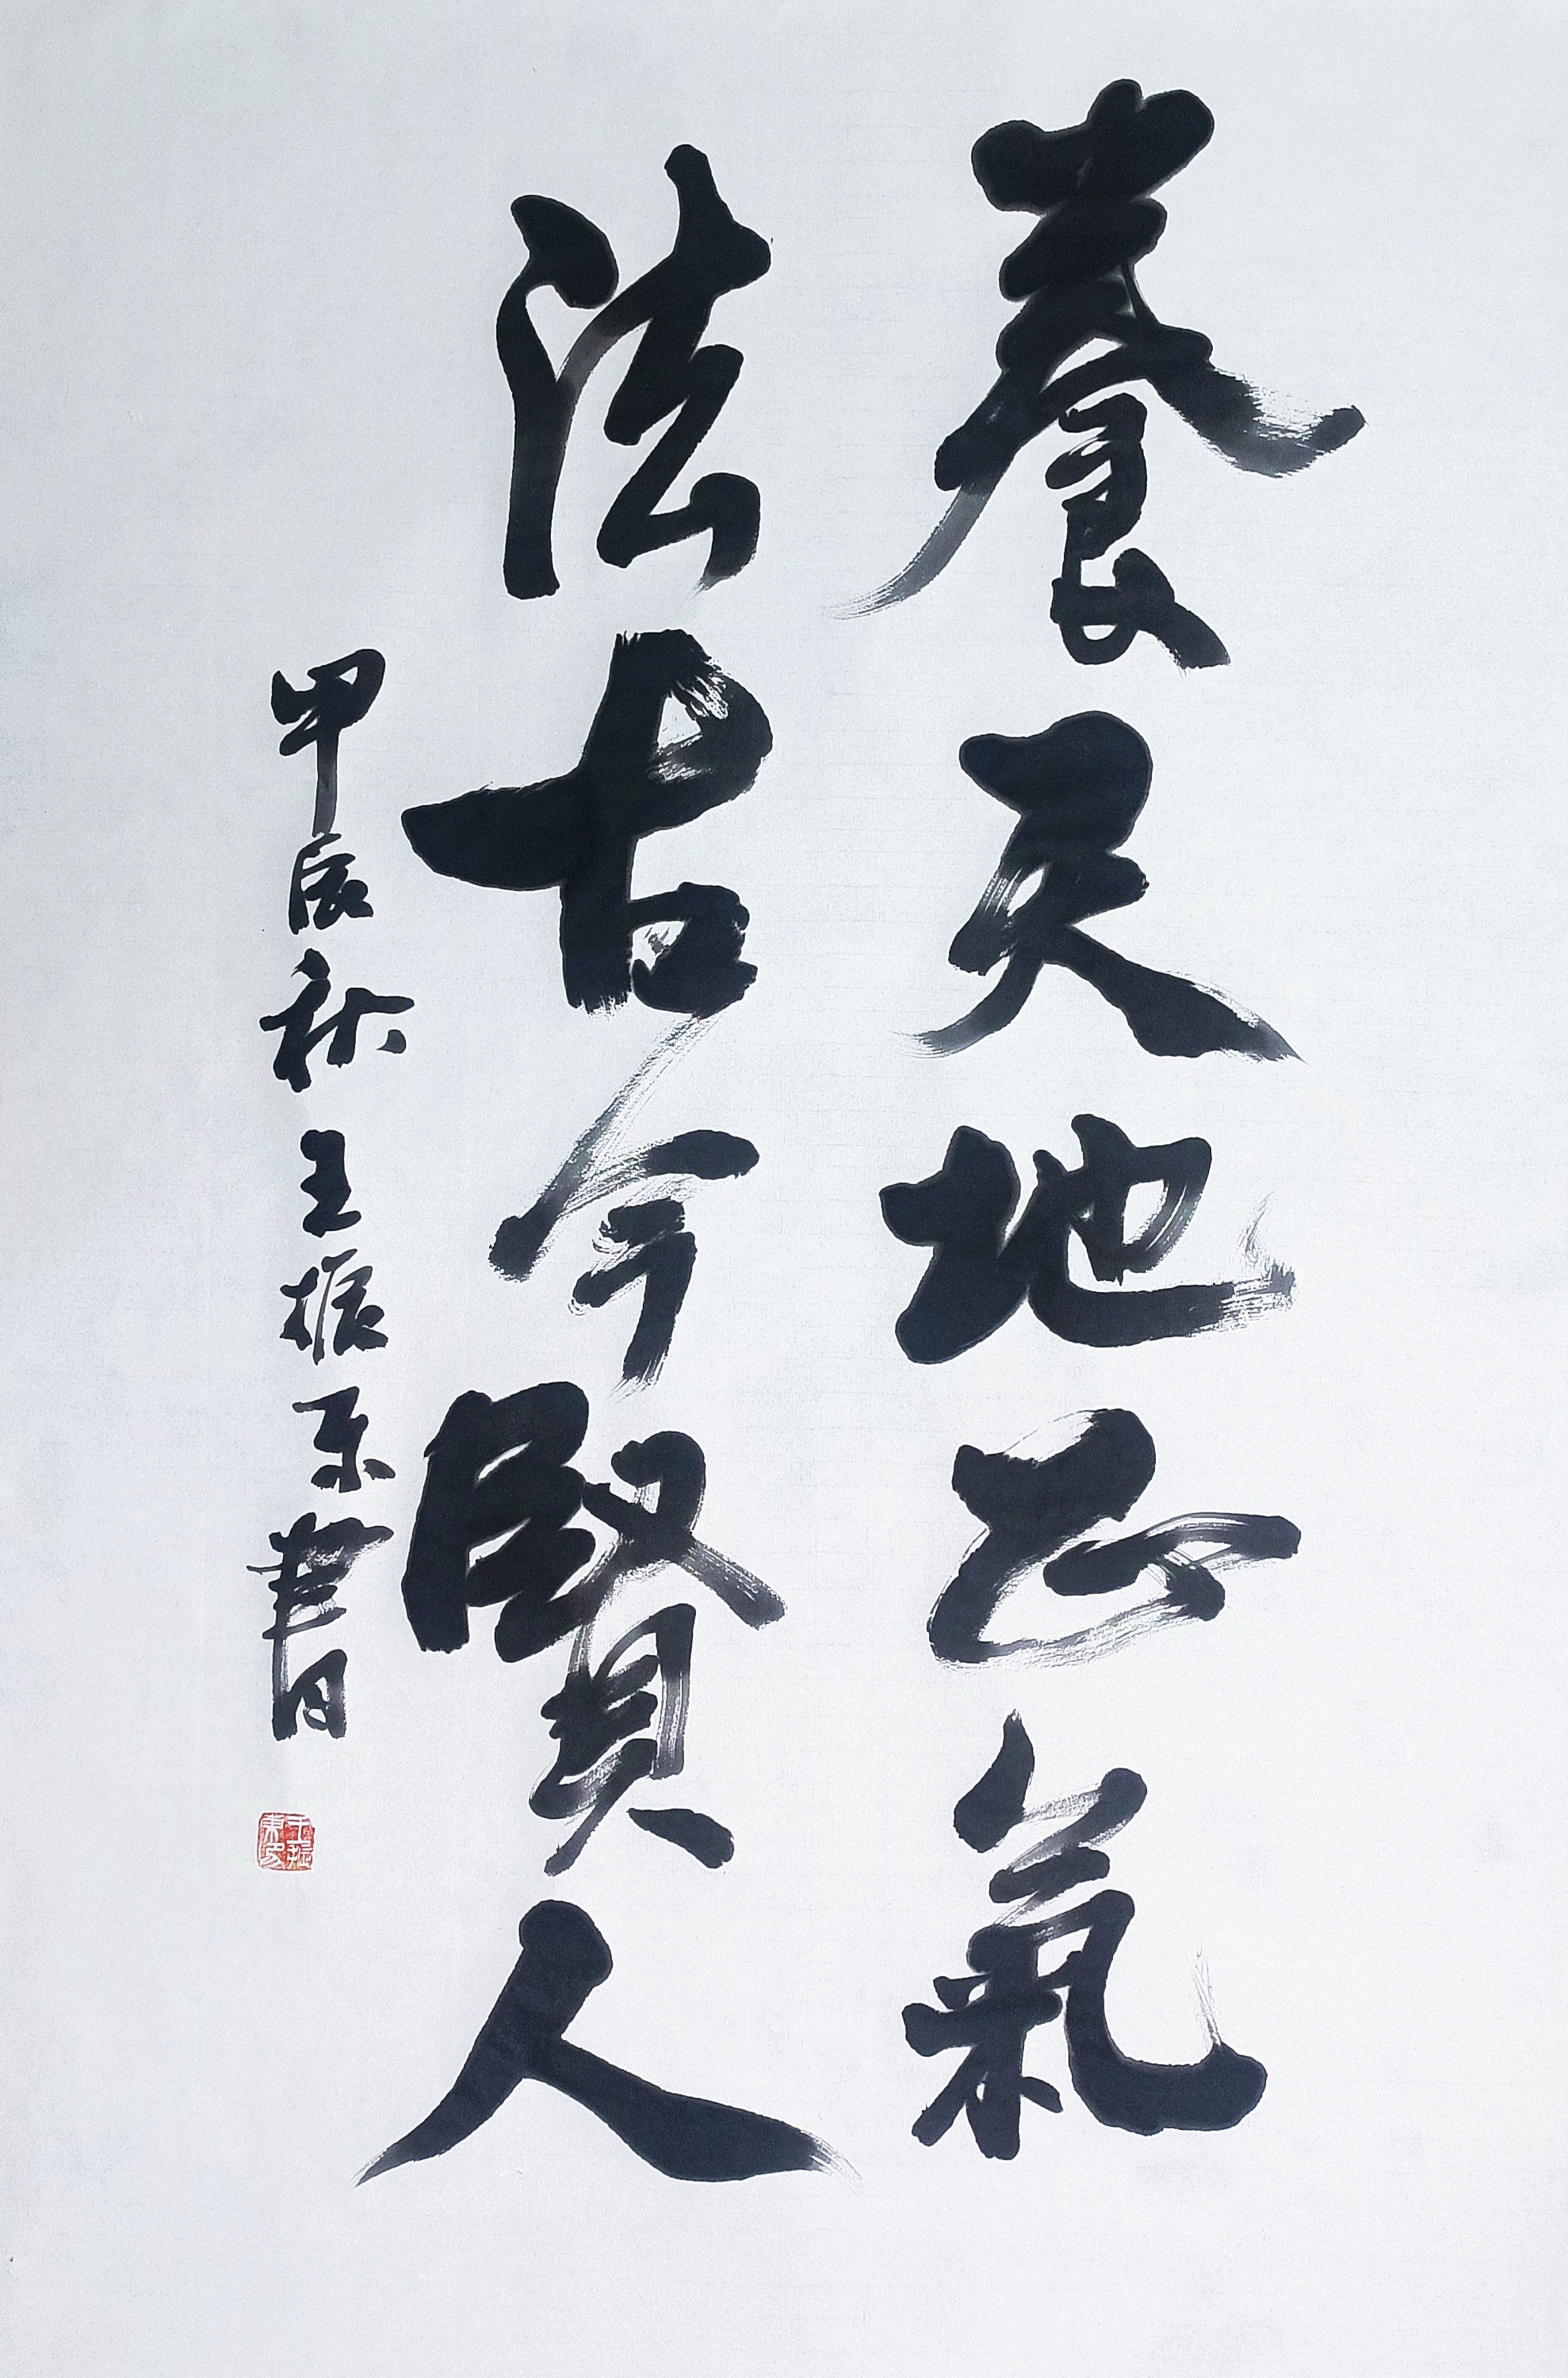 養天地正氣
法古今賢人
甲辰秋王振东書